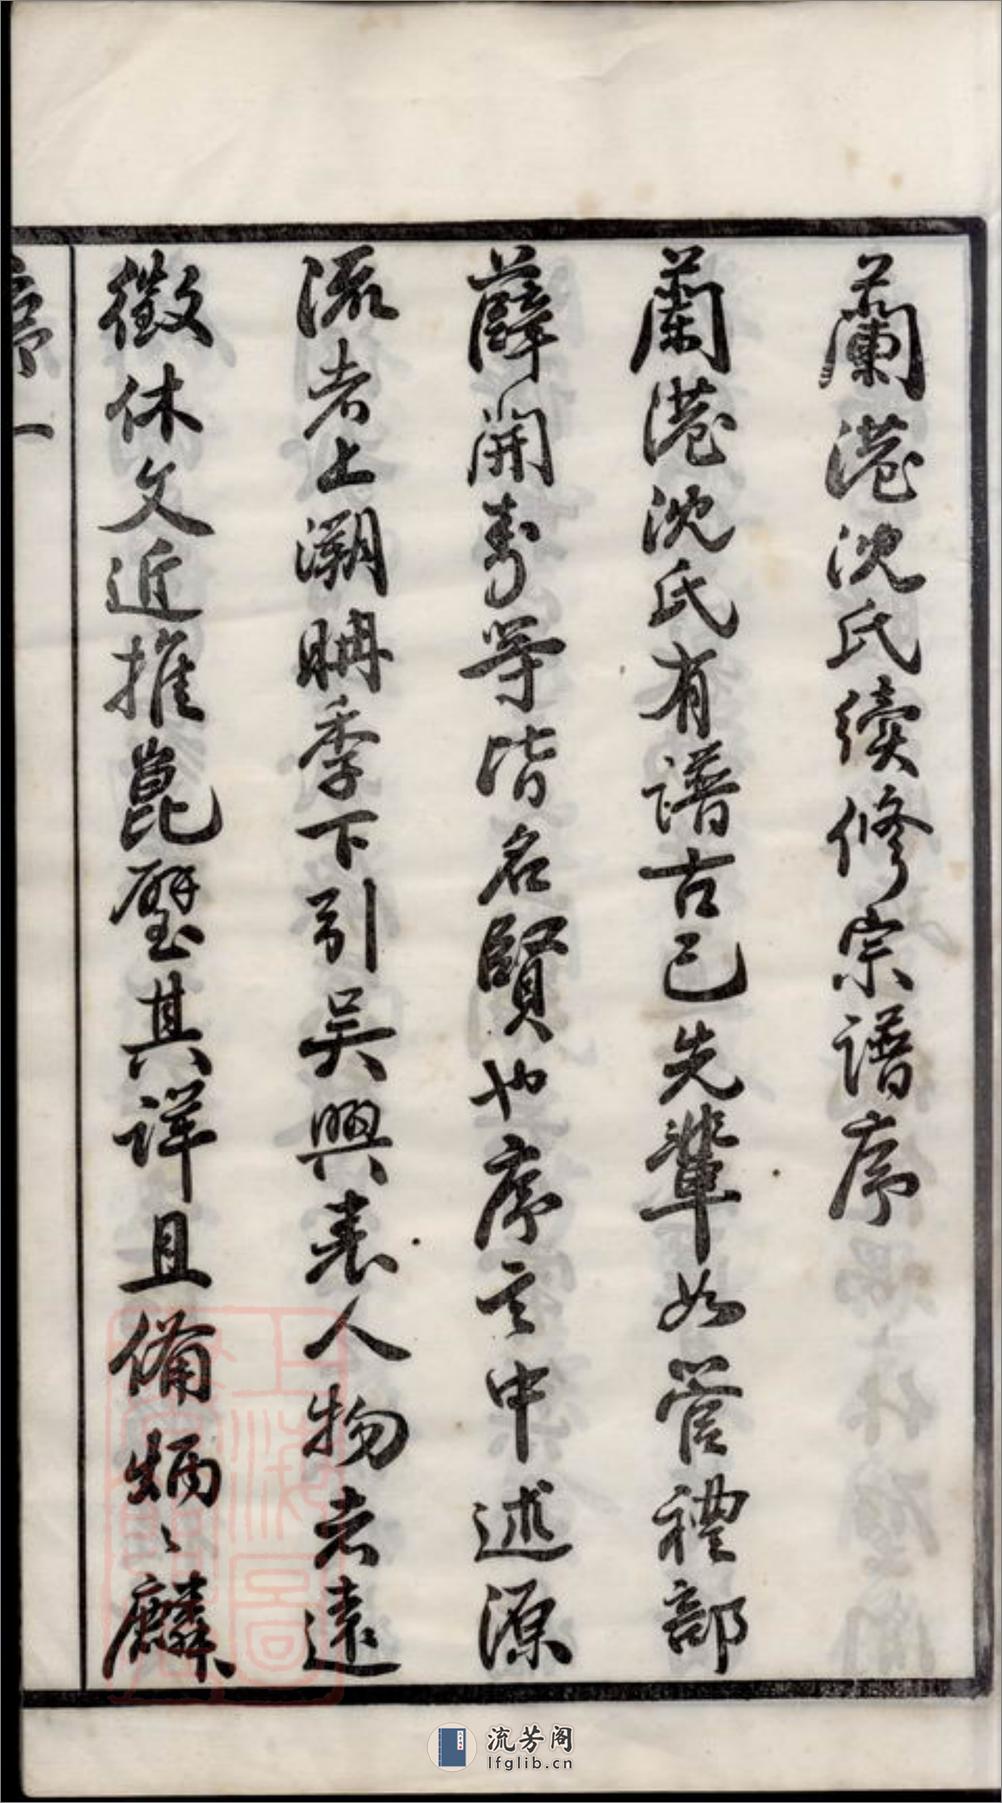 蘭港沈氏續修宗譜序
蘭港沈氏有譜古已先輩如管禮部
薛開壽等皆名賢也序言中述源
流者上溯聃季下引吳興表人物者遠
徵休文近推崑璧其詳且備炳〻麟
序一
上海圖
流芳阁
lfglib.cn